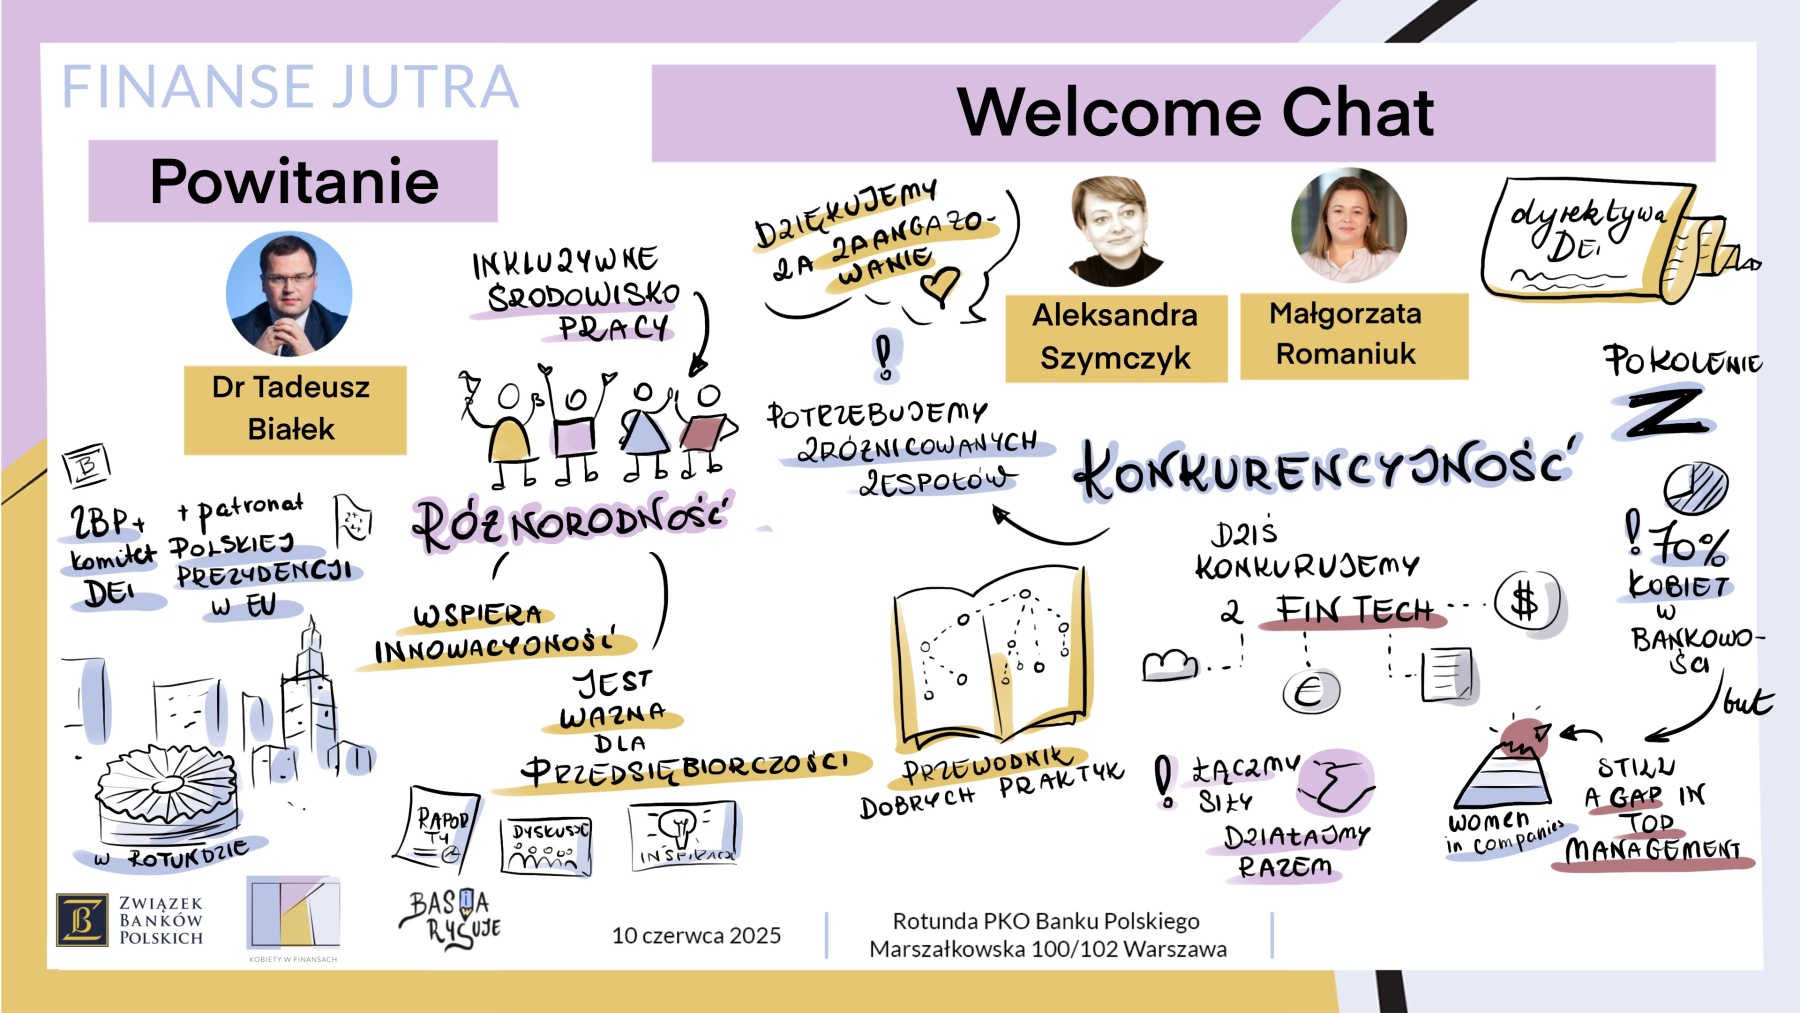 FINANSE JUTRA
Powitanie
Dr Tadeusz
Białek
INKLUZYWNE
ŚRODOWISKO
PRACY
B
ZBP +
komitet
DEI
+ patronat
POLSKIEJ
PREZYDENCJI
W EU
RÓŻNORODNOŚĆ
WSPIERA
INNOWACYJNOŚĆ
JEST
WAŻNA
DLA
PRZEDSIĘBIORCZOŚCI
W ROTUNDZIE
RAPOR
TY
DYSKUSJE
INSPIRACJE
Welcome Chat
DZIĘKUJEMY
ZA ZAANGAŻO-
WANIE
Aleksandra
Szymczyk
Małgorzata
Romaniuk
dyrektywa
DEI
!
POTRZEBUJEMY
ZRÓŻNICOWANYCH
ZESPOŁÓW
KONKURENCYJNOŚĆ
DZIŚ
KONKURUJEMY
Z FIN TECH
$
€
PRZEWODNIK
DOBRYCH PRAKTYK
! ŁĄCZMY
SIŁY
DZIAŁAJMY
RAZEM
POKOLENIE
Z
! 70%
KOBIET
W
BANKOWO-
ŚCI
but
STILL
A GAP IN
TOP
MANAGEMENT
women
in companies
ZWIĄZEK
BANKÓW
POLSKICH
KOBIETY W FINANSACH
BASIA
RYSUJE
10 czerwca 2025
Rotunda PKO Banku Polskiego
Marszałkowska 100/102 Warszawa